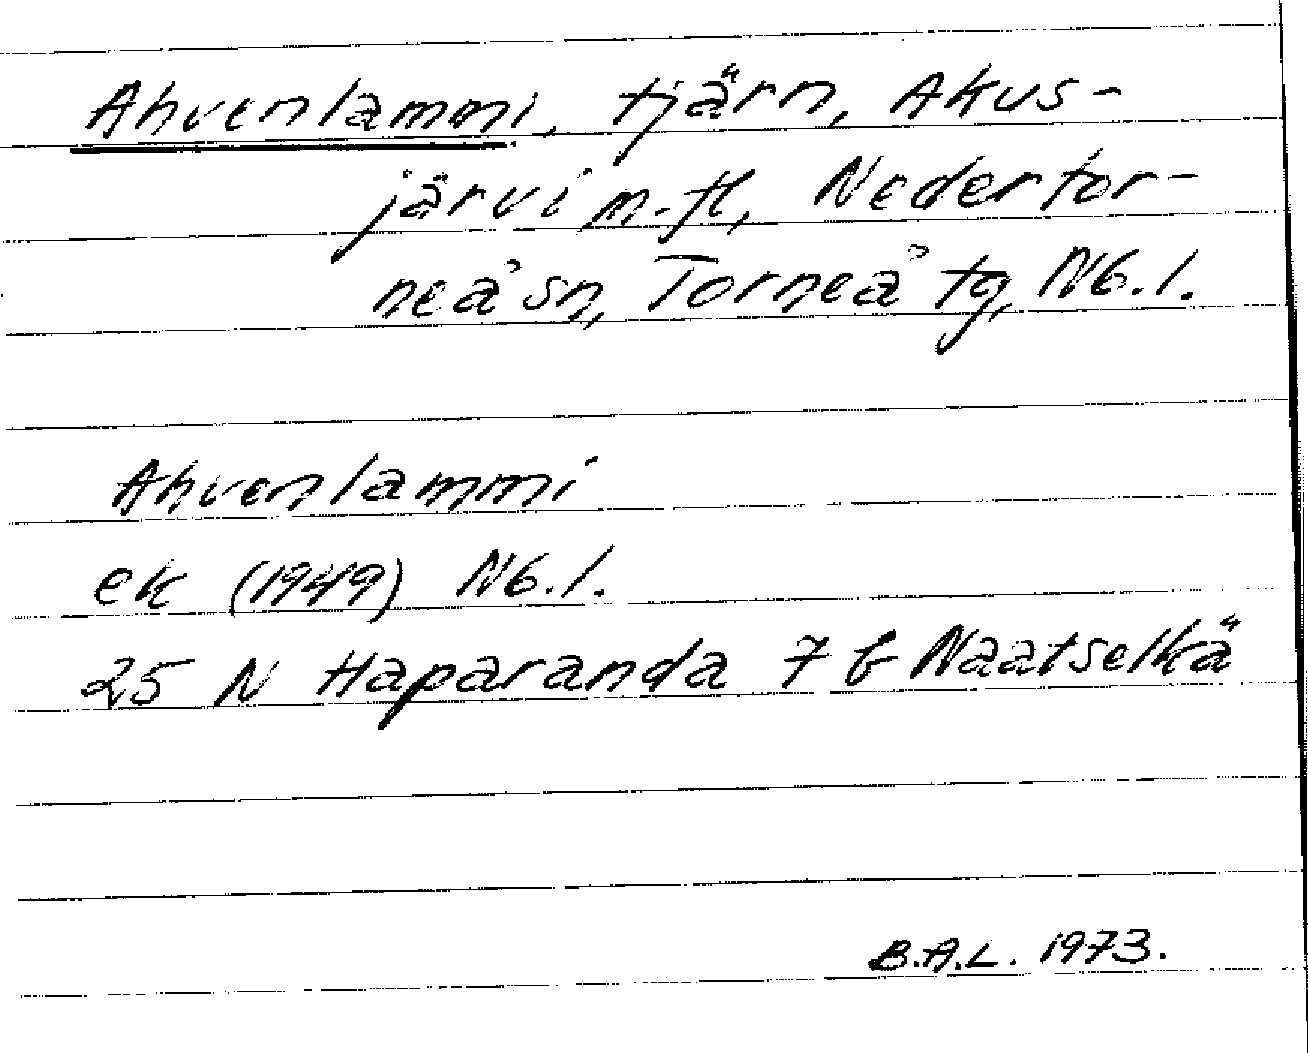 Ahvenlammi, tjärn, Akus-
järvi m.fl, Nedertor-
neå sn, Torneå tg, Nb.l.
Ahvenlammi
ek (1949) Nb.l.
25 N Haparanda 7 b Naatselkä
B.A.L. 1973.